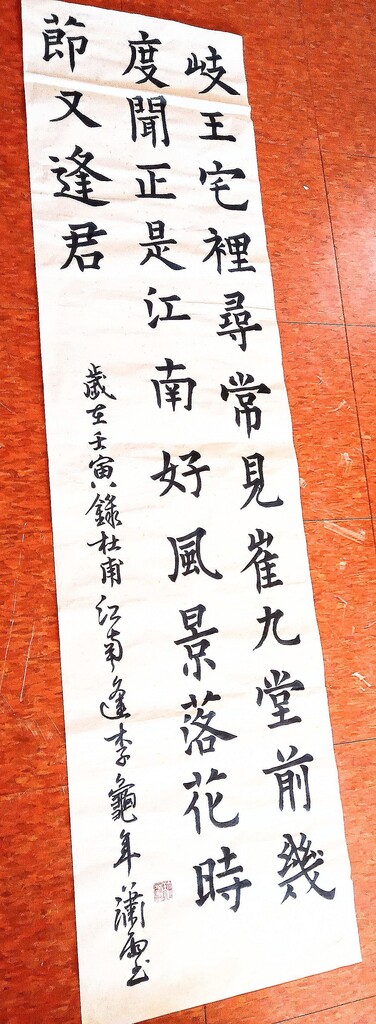 岐王宅裡尋常見崔九堂前幾
度聞正是江南好風景落花時
節又逢君
歲在壬寅錄杜甫江南逢李龜年蕭雨書